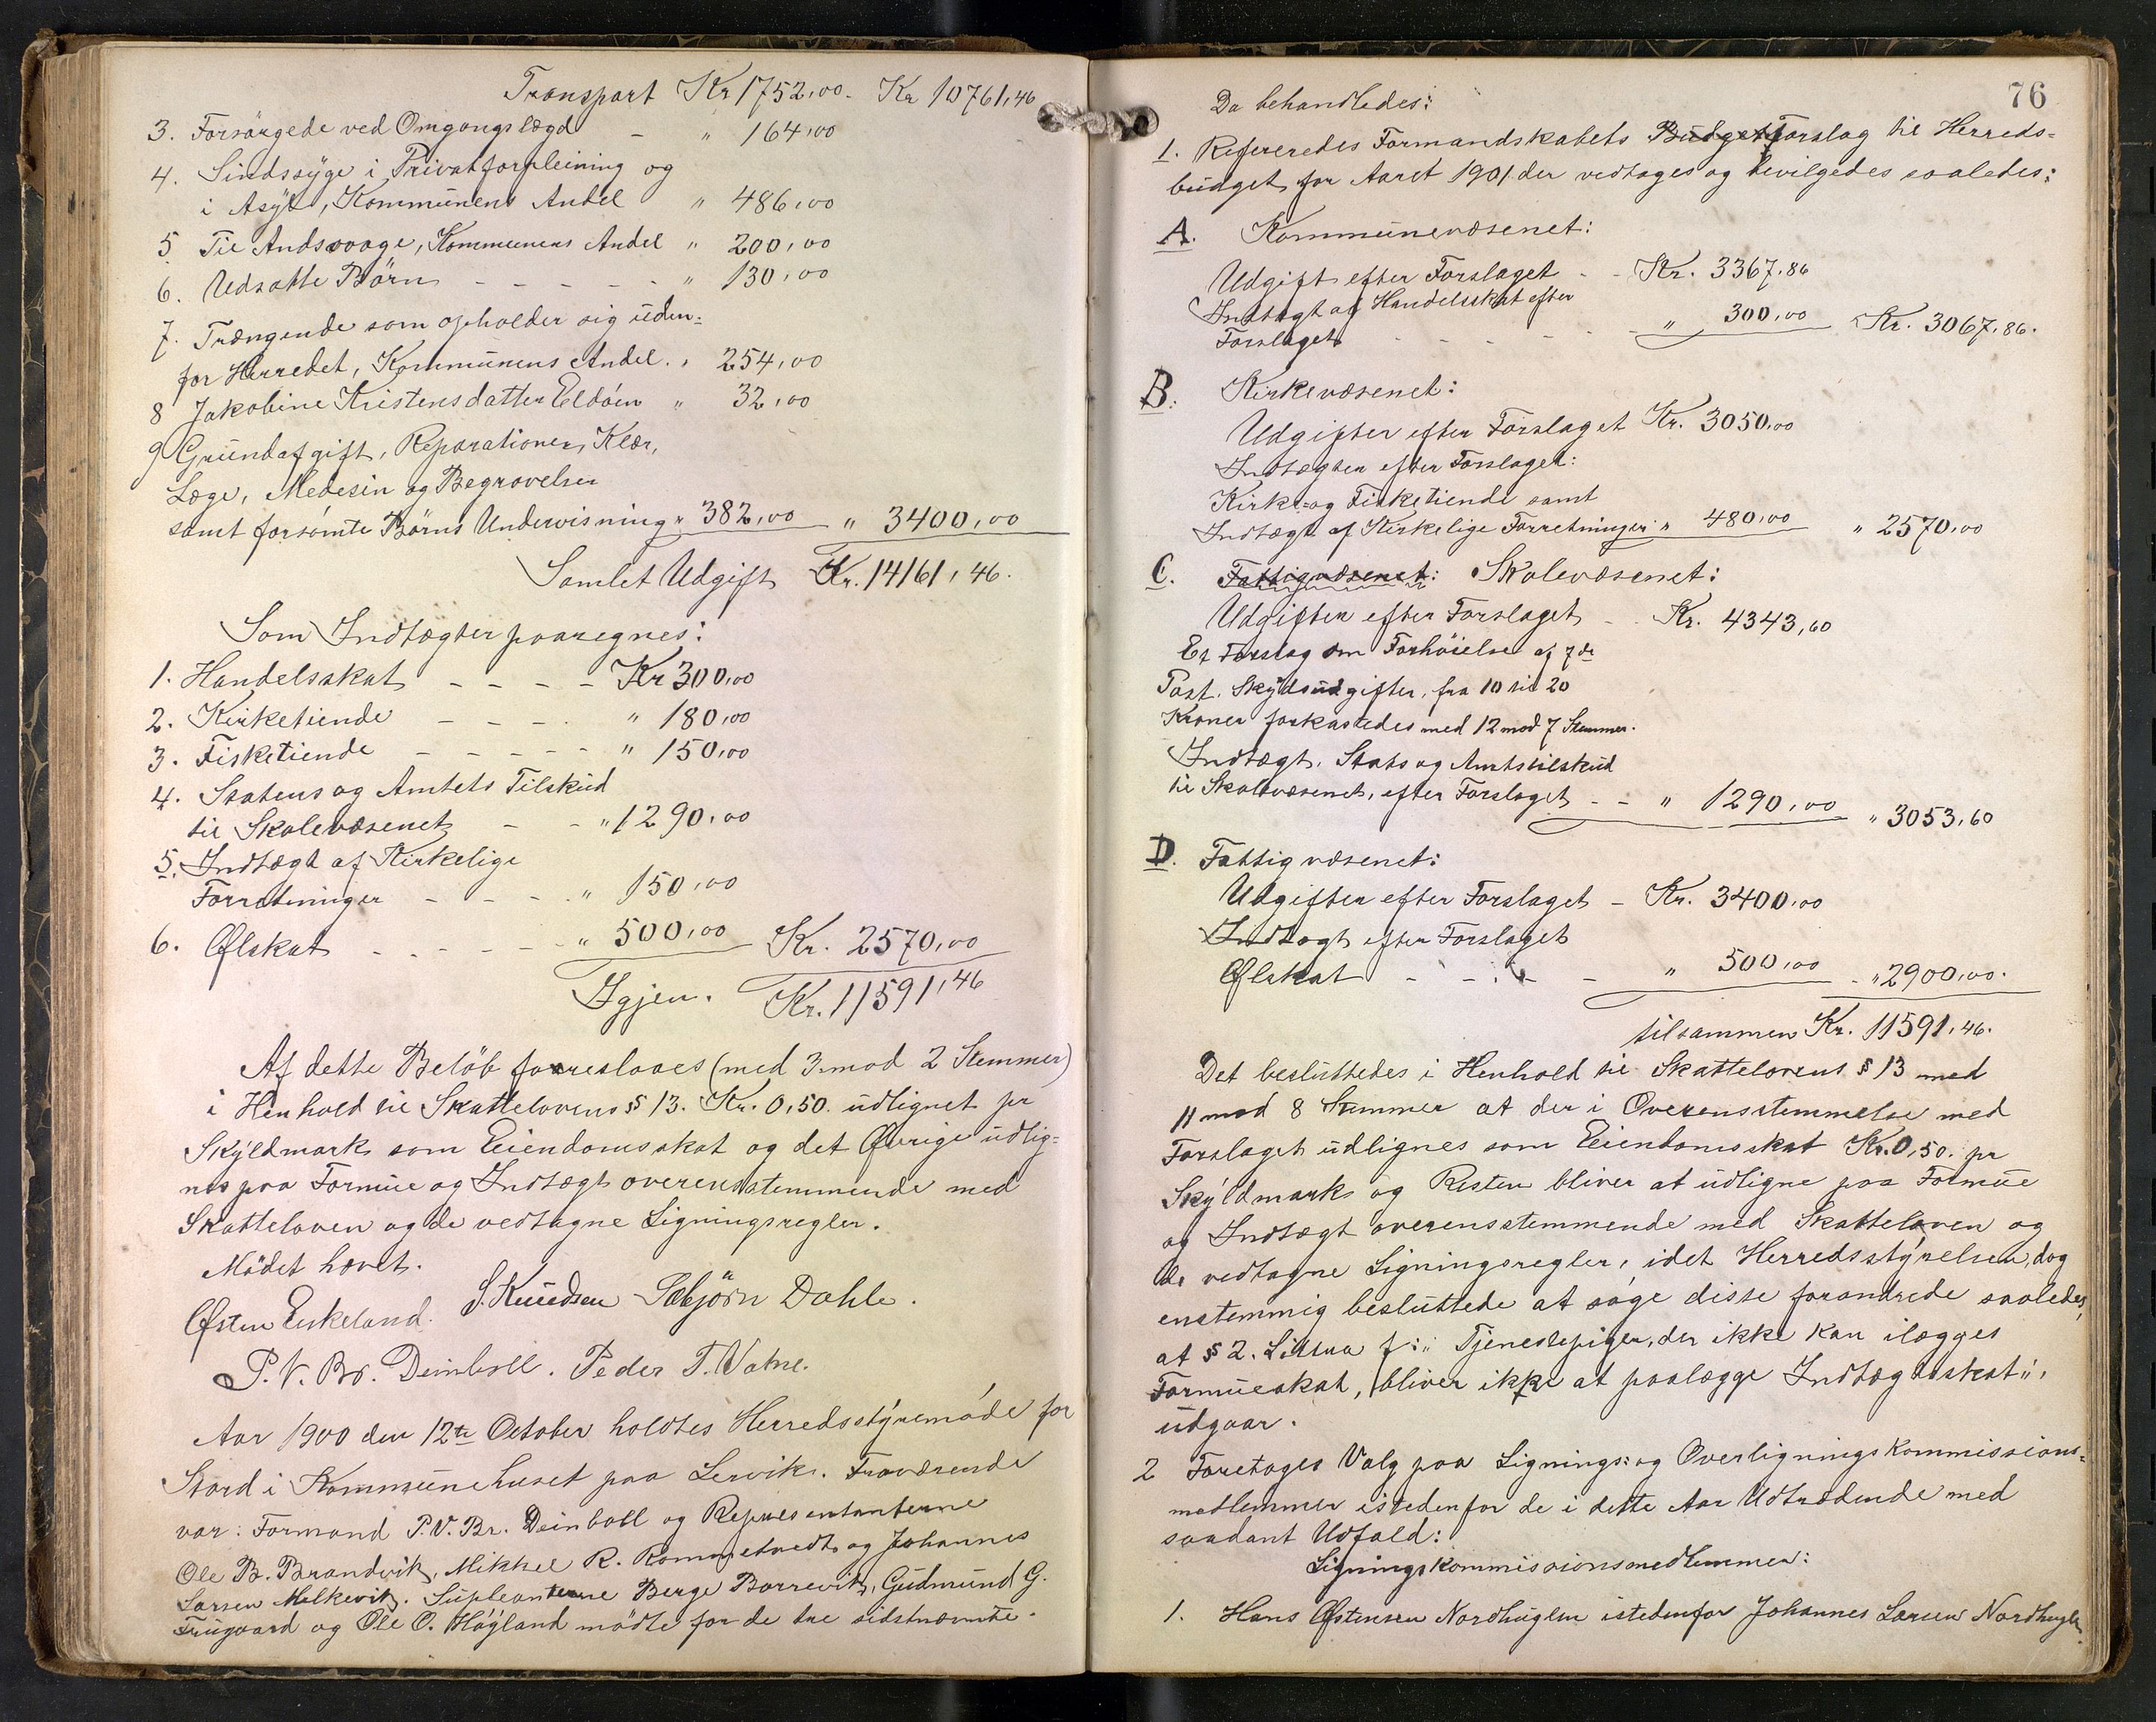 Transport Kr 1752,00. Kr 10761,46
3. Forsørgede ved Omgangslægd - " 164,00
4. Sindssyge i Privatforpleining og
i Asyl, Kommunens Andel " 486,00
5. Til Andsvage, Kommunens Andel " 200,00
6. Udsatte Børn - - - - - " 130,00
7. Trængende som opholder sig uden-
for Herredet, Kommunens Andel. " 254,00
8 Jakobine Kristensdatter Eldøen " 32,00
9 Grundafgift, Reparationer, Klær,
Læge, Medesin og Begravelser
samt forsømte Børns Undervisning " 382,00 " 3400,00
Samlet Udgift Kr. 14161,46.
Som Indtægter paaregnes:
1. Handelsskat - - - - Kr 300,00
2. Kirketiende - - - . " 180,00
3. Fisketiende - - - - - " 150,00
4. Statens og Amtets Tilskud
til Skolevæsenet - - " 1290,00
5. Indtægt af Kirkelige
Forretninger - - - . " 150,00
6. Ølskat - . - - - " 500,00 Kr. 2570,00
Igjen. Kr. 11591,46
Af dette Beløb foreslaaes (med 3 mod 2 Stemmer)
i Henhold til Skattelovens § 13. Kr. 0,50. udlignet pr
Skyldmark som Eiendomsskat og det Øvrige udlig-
nes paa Formue og Indtægt overensstemmende med
Skatteloven og de vedtagne Ligningsregler.
Mödet hævet.
Østen Eskeland. S. Knudsen Sæbjörn Dahle.
P. V. Br. Deinboll. Peder T. Vatne.
Aar 1900 den 12te October holdtes Herredsstyremøde for
Stord i Kommunehuset paa Lervik. Fraværende
var: Formand P.V. Br. Deinboll og Repræsentanterne
Ole B. Brandvik, Mikkel R. Rommetvedt og Johannes
Larsen Melkevik. Supleanterne Berge Borrevik, Gudmund G.
Frugaard og Ole O. Høgland mødte for de tre sidstnævnte.
76
Da behandledes:
1. Refereredes Formandskabets Budget Forslag til Herreds-
budget for Aaret 1901 der vedtoges og bevilgedes saaledes:
A. Kommunevæsenet:
Udgift efter Forslaget - - Kr. 3367,86
Indtægt af Handelsskat efter
Forslaget - - - - - " 300,00 Kr. 3067,86.
B. Kirkevæsenet:
Udgifter efter Forslaget Kr. 3050,00
Indtægter efter Forslaget:
Kirke- og Fisketiende samt
Indtægt af Kirkelige Forretninger " 480,00 " 2570,00
C. Fattigvæsenet: Skolevæsenet:
Udgifter efter Forslaget - - Kr. 4343,60
Et Forslag om Forhøielse af 7de
Post, Skydsudgifter, fra 10 til 20
Kroner forkastedes med 12 mod 7 Stemmer.
Indtægt, Stats og Amtstilskud
til Skolevæsenet, efter Forslaget - - " 1290,00 " 3053,60
D. Fattigvæsenet:
Udgifter efter Forslaget - Kr. 3400,00
Indtægt efter Forslaget
Ølskat - - - - " 500,00 - " 2900,00.
tilsammen Kr. 11591,46.
Det besluttedes i Henhold til Skattelovens § 13 med
11 mod 8 Stemmer at der i Overensstemmelse med
Forslaget udlignes som Eiendomsskat Kr. 0,50. pr
Skyldmark og Resten bliver at udligne paa Formue
og Indtægt overensstemmende med Skatteloven og
de vedtagne Ligningsregler, idet Herredsstyrelsen dog
enstemmig besluttede at søge disse forandrede saaledes,
at § 2. Littra f: "Tjenestepiger, der ikke kan ilægges
Formueskat, bliver ikke at paalægge Indtægtsskat",
udgaar.
2 Foretoges Valg paa Lignings- og Overligningskommissions-
medlemmer istedenfor de i dette Aar Udtrædende med
saadant Udfald:
Ligningskommissionsmedlemmer:
1. Hans Østensen Nordhuglen istedenfor Johannes Larsen Nordhuglen.